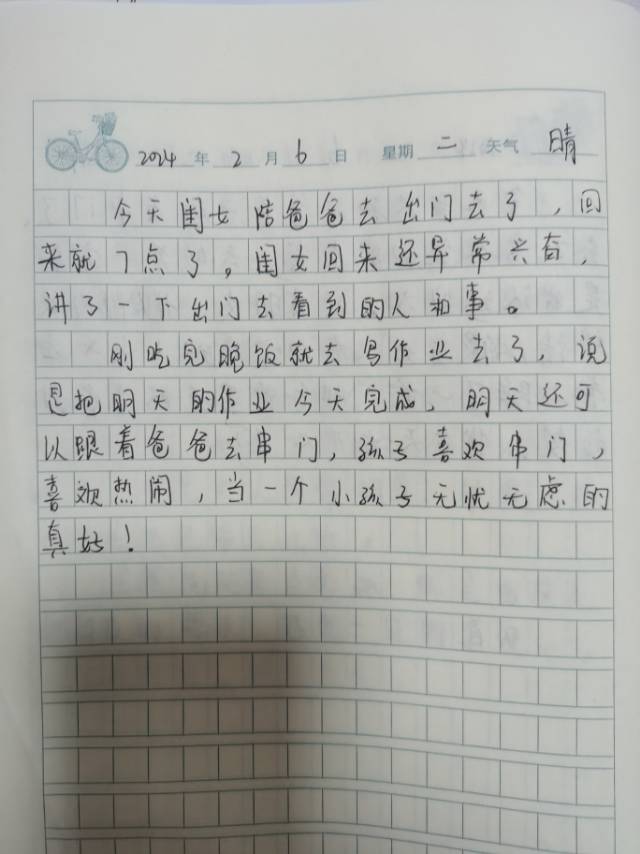 2024年2月6日 星期二 天气晴
今天闺女陪爸爸去出门去了，回
来就7点了。闺女回来还异常兴奋，
讲了一下出门去看到的人和事。
刚吃完晚饭就去写作业去了，说
是把明天的作业今天完成，明天还可
以跟着爸爸去串门，孩子喜欢串门，
喜欢热闹，当一个小孩子无忧无虑的
真好！